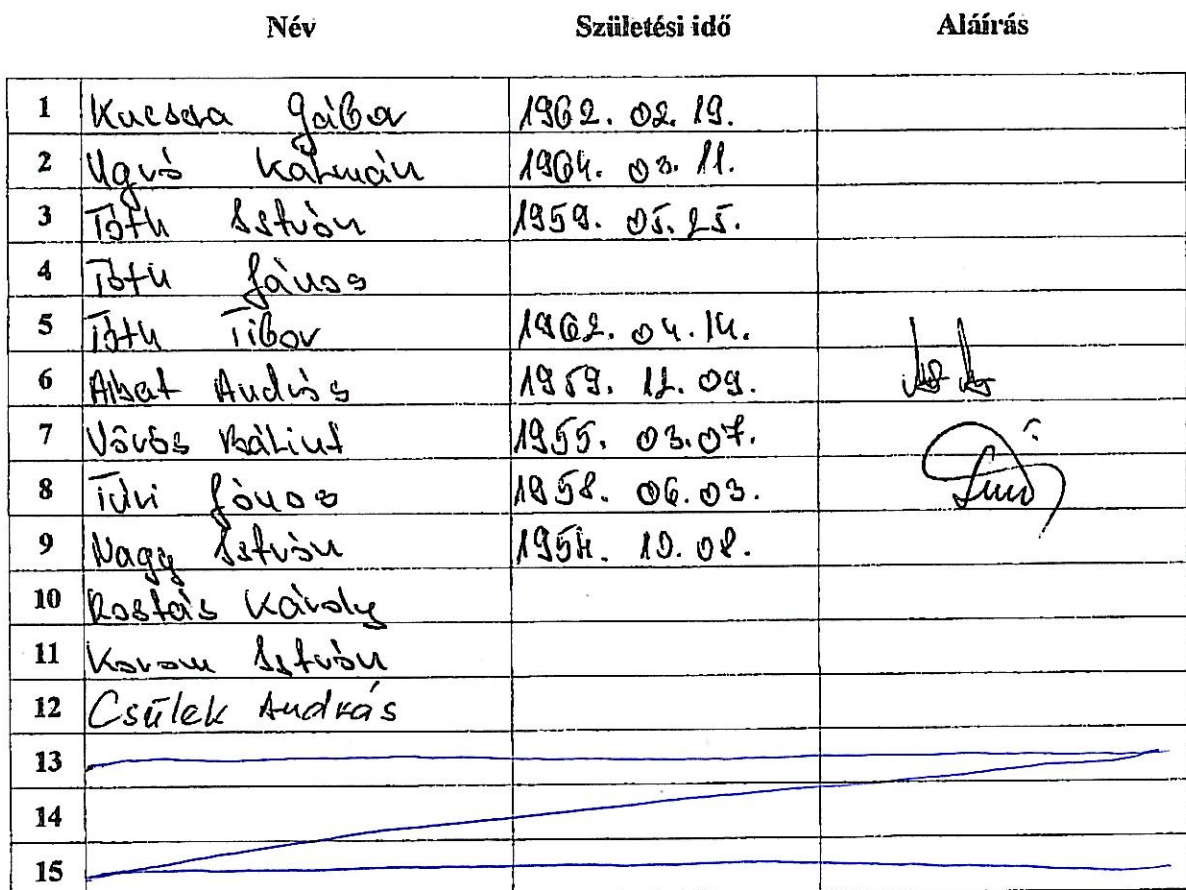 Név Születési idő Aláírás
1 Kucsera Gábor 1962. 02. 19.
2 Ugró Kálmán 1964. 03. 11.
3 Tóth István 1959. 05. 25.
4 Tóth János
5 Tóth Tibor 1962. 04. 14.
6 Albat András 1959. 12. 09.
7 Vörös Bálint 1955. 03. 07.
8 Túri János 1958. 06. 03.
9 Nagy István 1954. 10. 08.
10 Rostás Károly
11 Korom István
12 Csülek András
13
14
15